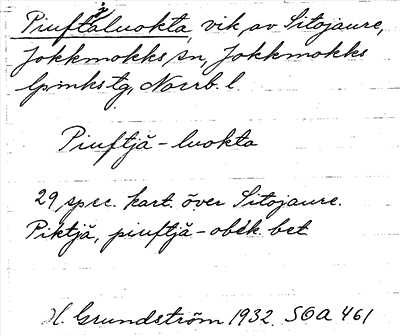 Piuftjaluokta, vik av Sitojaure,
Jokkmokks sn, Jokkmokks
lpmkstg, Norrb. l.
Piuftjă-luokta
29 spec. kart. över Sitojaure.
Piktjă, piuftjă - obek. bet.
H. Grundström 1932. SOA 461